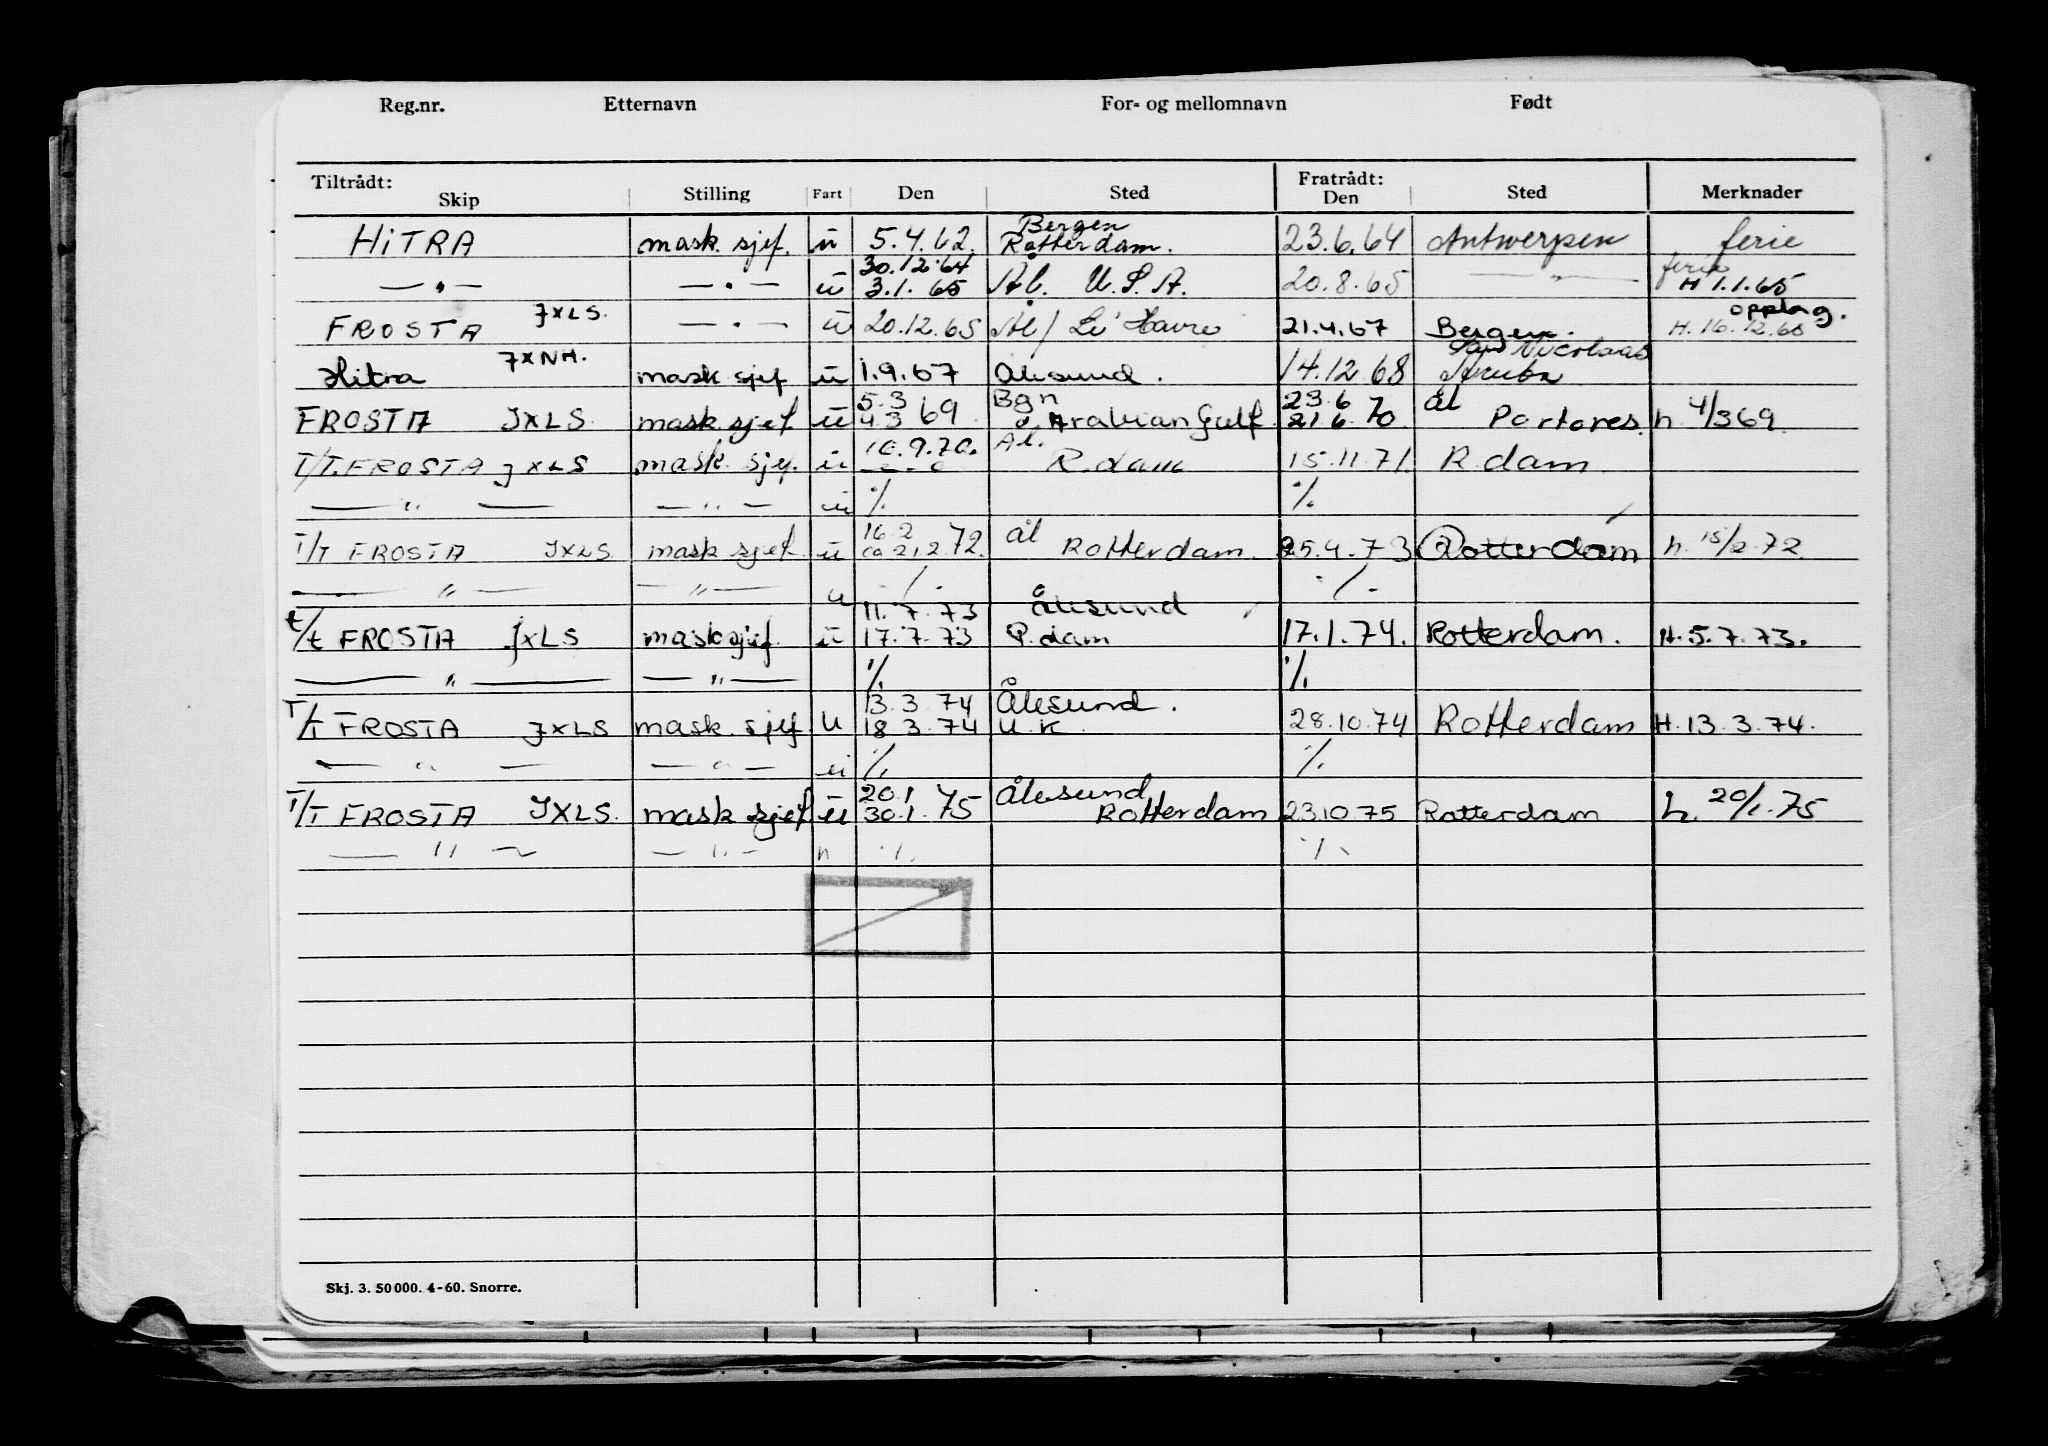 Reg.nr. Etternavn For- og mellomnavn Født
Tiltrådt: Fratrådt:
Skip Stilling Fart Den Sted Den Sted Merknader
Bergen
HiTRA mask. sjef. u 5.4.62. Rotterdam. 23.6.64 Antwerpen ferie
30.12.64 ferie
— " — — " — u 3.1.65 Ål. U.S.A. 20.8.65 — " — H 1.1.65
JXLS. opplag.
FROSTA — " — u 20.12.65 Ål / Le Havre 21.4.67 Bergen. H. 16.12.65
JXNH. San Nicolaas
Hitra mask sjef u 1.9.67 Ålesund. 14.12.68 Aruba
5.3 Bgn 23.6 ål
FROSTA JXLS. mask sjef u 4.3 69 Arabian Gulf. 21.6 70. Portores. h. 4/3 69.
10.9.70. Ål.
T/T. FROSTA JXLS mask. sjef. u — " — R.dam 15.11.71. R.dam.
— " — — " — u ·/. ·/.
16.2 ål
T/T FROSTA JXLS mask sjef u ca 21.2.72. Rotterdam. 25.4.73 Rotterdam h. 15/2.72.
— " — — " — u ·/. ·/.
11.7.73 Ålesund
t/t FROSTA JXLS mask sjef. u 17.7.73 R.dam 17.1.74. Rotterdam. H. 5.7.73.
— " — — " — ·/. ·/.
13.3.74 Ålesund.
T/T FROSTA JXLS mask. sjef u 18.3.74 U.K. 28.10.74 Rotterdam H. 13.3.74.
— " — — " — u ·/. ·/.
20.1 Ålesund
T/T FROSTA JXLS. mask sjef u 30.1.75 Rotterdam 23.10.75 Rotterdam h. 20/1.75
— " — — " — ·/. ·/.
Skj. 3. 50000. 4-60. Snorre.